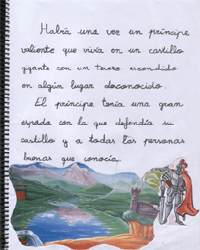 Había una vez un príncipe
valiente que vivía en un castillo
gigante con un tesoro escondido
en algún lugar desconocido.
El príncipe tenía una gran
espada con la que defendía su
castillo y a todas las personas
buenas que conocía.